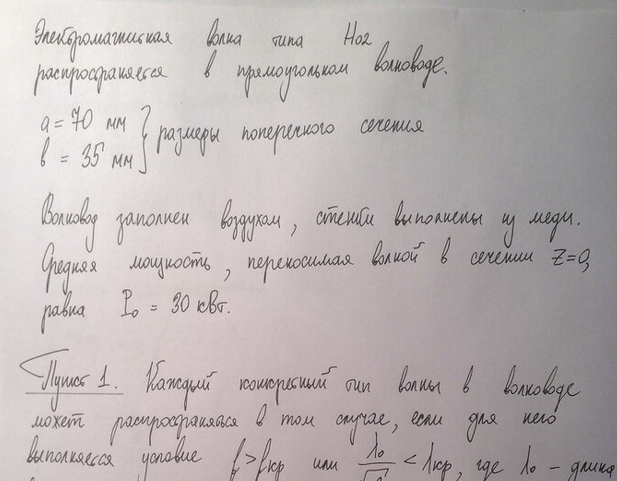 Электромагнитная волна типа H02
распространяется в прямоугольном волноводе.
a = 70 мм
b = 35 мм } размеры поперечного сечения
Волновод заполнен воздухом, стенки выполнены из меди.
Средняя мощность, переносимая волной в сечении z=0,
равна P₀ = 30 кВт.
Пункт 1. Каждый конкретный тип волны в волноводе
может распространяться в том случае, если для него
выполняется условие f > fкр или λ₀/√ < λкр, где λ₀ – длина